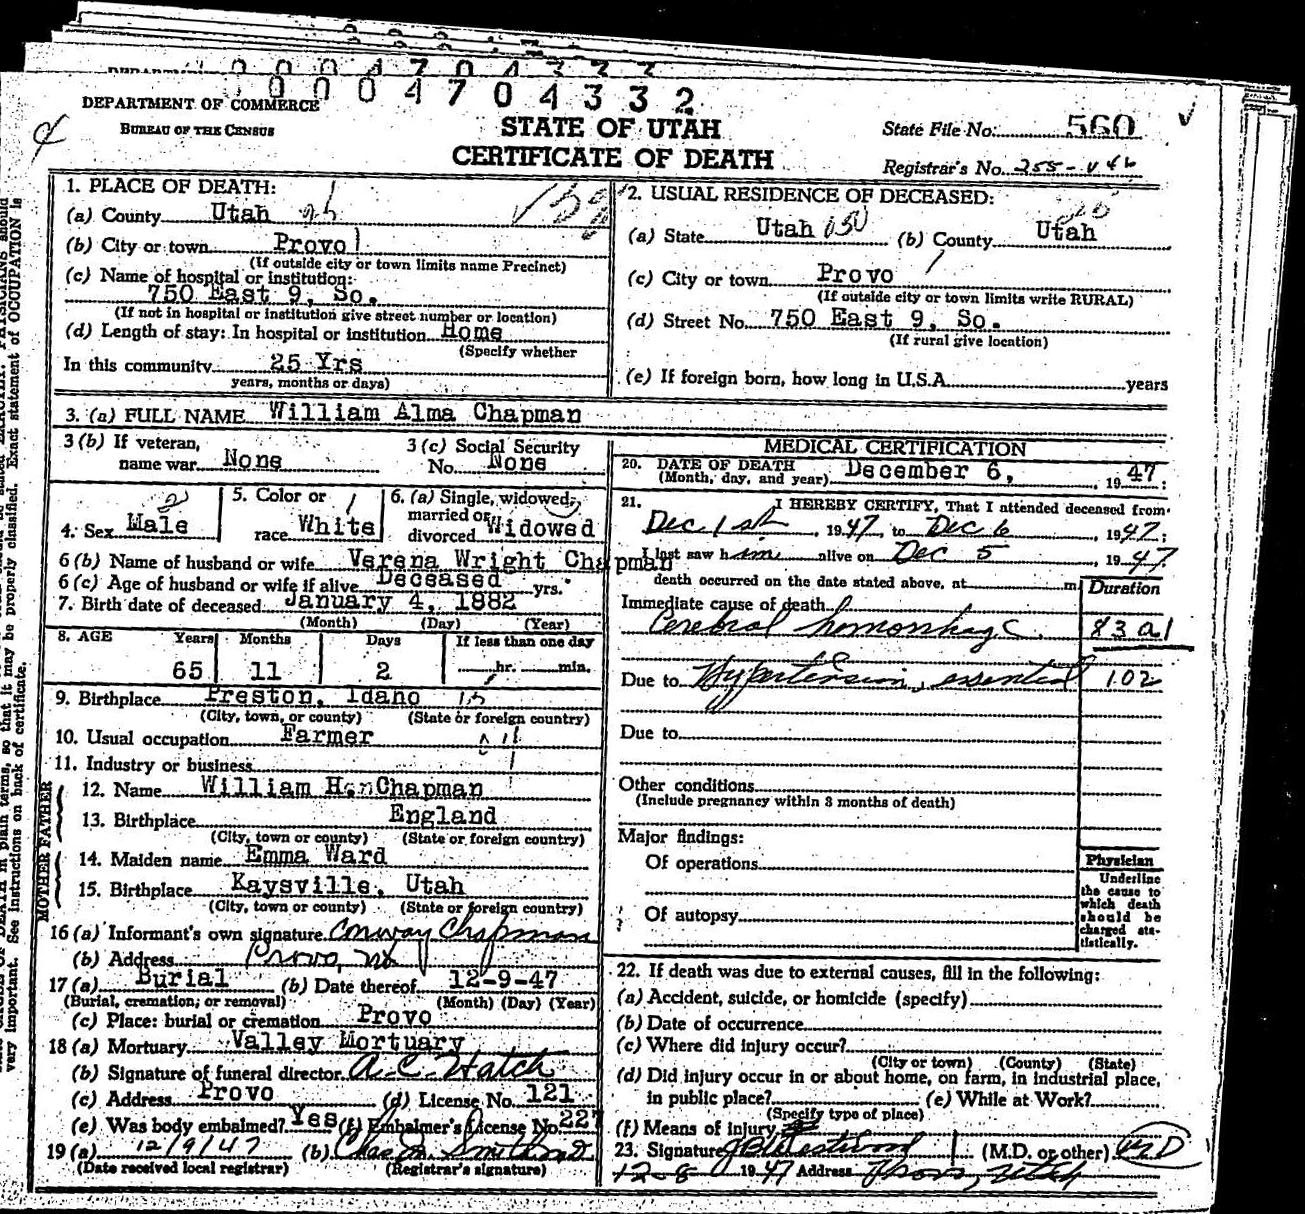 0 0 0 4 7 0 4 3 3 2
DEPARTMENT OF COMMERCE
BUREAU OF THE CENSUS
STATE OF UTAH
CERTIFICATE OF DEATH
State File No. 560
Registrar's No. 255-
1. PLACE OF DEATH:
(a) County Utah
(b) City or town Provo
(If outside city or town limits name Precinct)
(c) Name of hospital or institution:
750 East 9, So.
(If not in hospital or institution give street number or location)
(d) Length of stay: In hospital or institution Home
(Specify whether
In this community 25 Yrs
years, months or days)
2. USUAL RESIDENCE OF DECEASED:
(a) State Utah (b) County Utah
(c) City or town Provo
(If outside city or town limits write RURAL)
(d) Street No. 750 East 9, So.
(If rural give location)
(e) If foreign born, how long in U.S.A. years
3. (a) FULL NAME William Alma Chapman
3 (b) If veteran, name war None
3 (c) Social Security No. None
4. Sex Male
5. Color or race White
6. (a) Single, widowed, married or divorced Widowed
6 (b) Name of husband or wife Verena Wright Chapman
6 (c) Age of husband or wife if alive Deceased yrs.
7. Birth date of deceased January 4, 1882
(Month) (Day) (Year)
8. AGE Years Months Days If less than one day
65 11 2 hr. min.
9. Birthplace Preston, Idaho
(City, town, or county) (State or foreign country)
10. Usual occupation Farmer
11. Industry or business
FATHER
12. Name William H. Chapman
13. Birthplace England
(City, town or county) (State or foreign country)
MOTHER
14. Maiden name Emma Ward
15. Birthplace Kaysville, Utah
(City, town or county) (State or foreign country)
16 (a) Informant's own signature Conway Chapman
(b) Address Provo, Ut
17 (a) Burial (b) Date thereof 12-9-47
(Burial, cremation, or removal) (Month) (Day) (Year)
(c) Place: burial or cremation Provo
18 (a) Mortuary Valley Mortuary
(b) Signature of funeral director A. C. Hatch
(c) Address Provo (d) License No. 121
(e) Was body embalmed? Yes (f) Embalmer's License No. 227
19 (a) 12/9/47 (b)
(Date received local registrar) (Registrar's signature)
MEDICAL CERTIFICATION
20. DATE OF DEATH
(Month, day, and year) December 6, 1947;
21. I HEREBY CERTIFY, That I attended deceased from
Dec. 1st, 1947, to Dec 6, 1947;
I last saw him alive on Dec 5, 1947
death occurred on the date stated above, at m
Duration
Immediate cause of death
Cerebral hemorrhage. 83 a1
Due to Hypertension, essential 102
Due to
Other conditions
(Include pregnancy within 3 months of death)
Major findings:
Of operations
Of autopsy
Physician
Underline
the cause to
which death
should be
charged sta-
tistically.
22. If death was due to external causes, fill in the following:
(a) Accident, suicide, or homicide (specify)
(b) Date of occurrence
(c) Where did injury occur?
(City or town) (County) (State)
(d) Did injury occur in or about home, on farm, in industrial place,
in public place? (e) While at Work?
(Specify type of place)
(f) Means of injury
23. Signature (M.D. or other) MD
12-8 1947 Address Provo, Utah